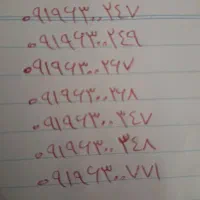 ۰۹۱۹۶۳۰۰۲۴۷
۰۹۱۹۶۳۰۰۲۴۹
۰۹۱۹۶۳۰۰۲۶۷
۰۹۱۹۶۳۰۰۲۶۸
۰۹۱۹۶۳۰۰۳۴۷
۰۹۱۹۶۳۰۰۳۴۸
۰۹۱۹۶۳۰۰۷۷۱